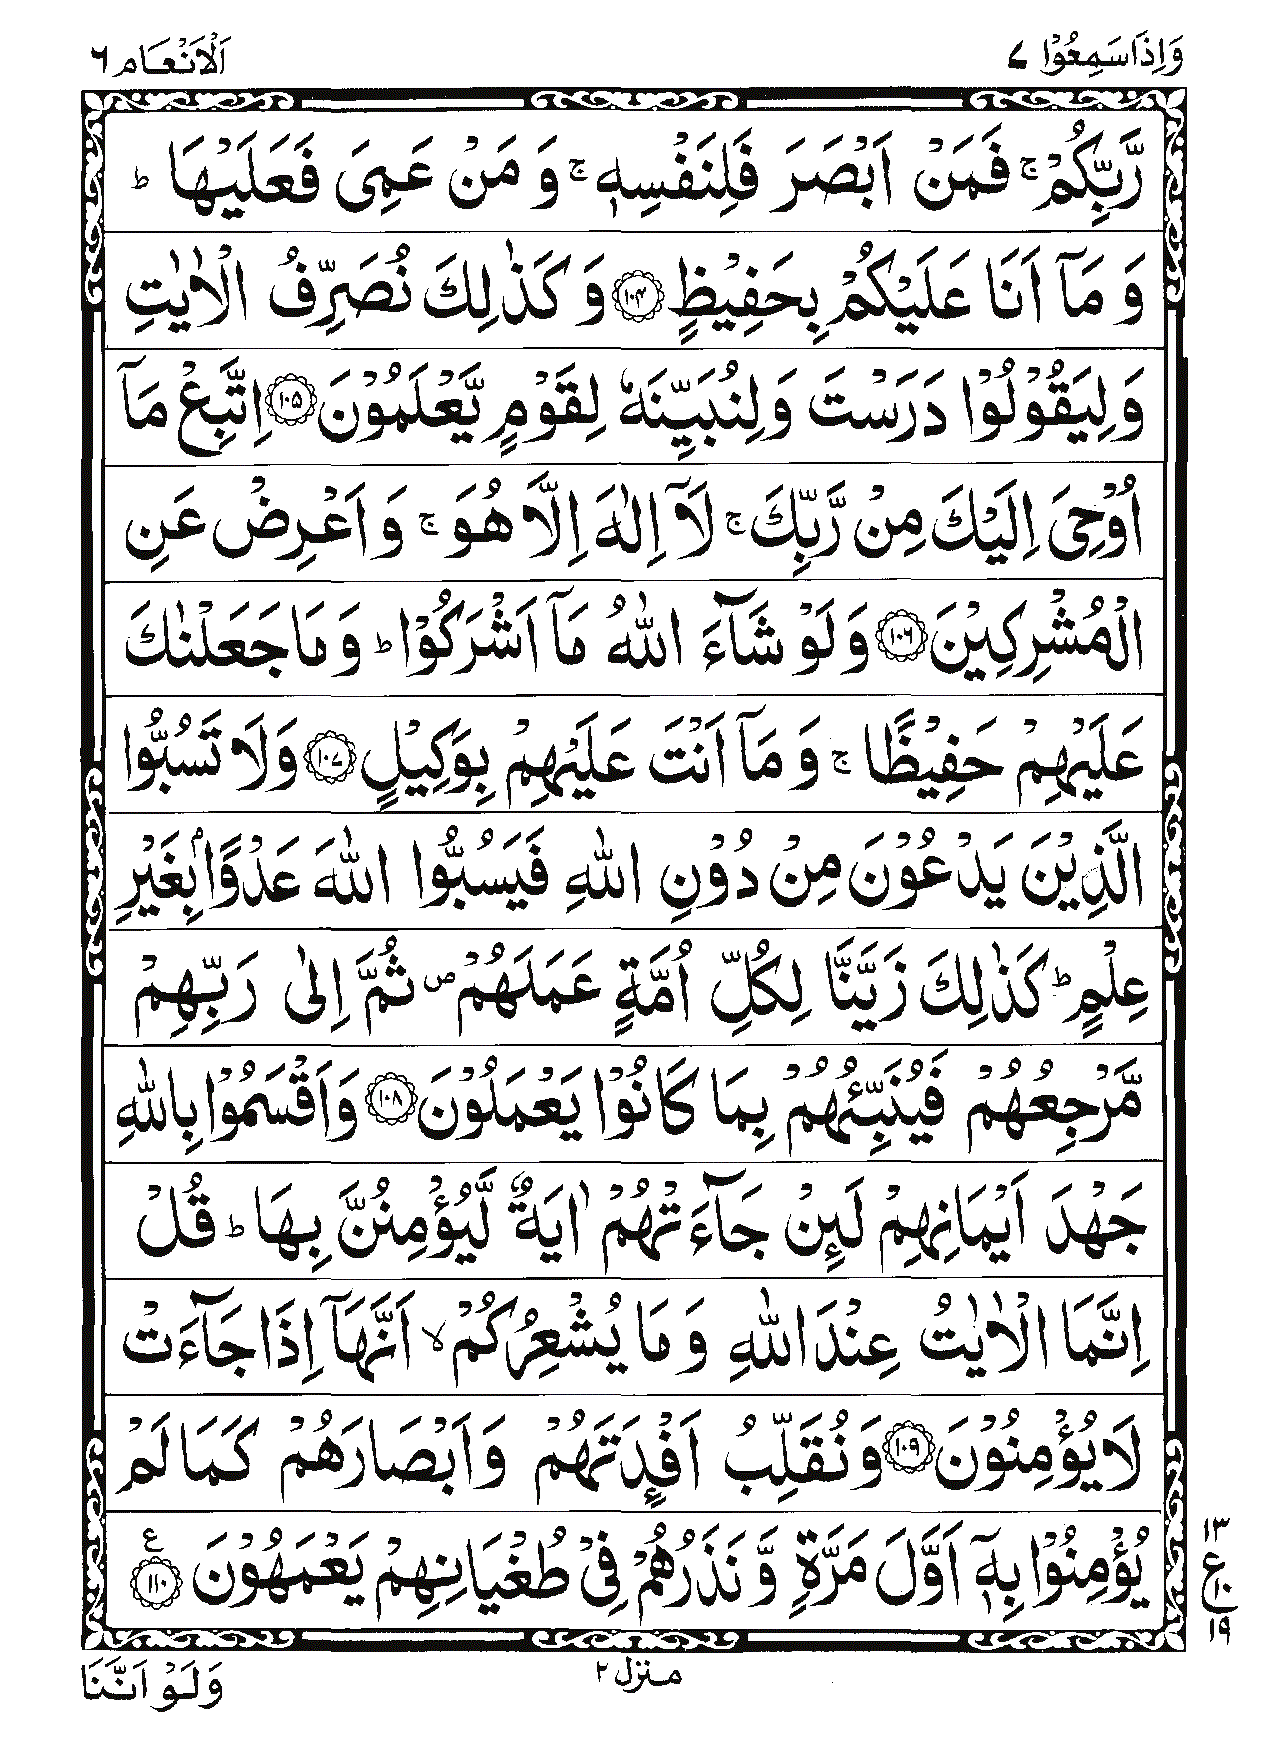 وَاِذَاسَمِعُوْا ٧
اَلْاَنْعَام ٦
رَّبِّكُمْ ۚ فَمَنْ اَبْصَرَ فَلِنَفْسِهٖ ۚ وَ مَنْ عَمِىَ فَعَلَيْهَا ؕ
وَ مَاۤ اَنَا عَلَيْكُمْ بِحَفِيْظٍ ۝۱۰۴ وَ كَذٰلِكَ نُصَرِّفُ الْاٰيٰتِ
وَلِيَقُوْلُوْا دَرَسْتَ وَلِنُبَيِّنَهٗ لِقَوْمٍ يَّعْلَمُوْنَ ۝۱۰۵ اِتَّبِعْ مَاۤ
اُوْحِىَ اِلَيْكَ مِنْ رَّبِّكَ ۚ لَاۤ اِلٰهَ اِلَّا هُوَ ۚ وَ اَعْرِضْ عَنِ
الْمُشْرِكِيْنَ ۝۱۰۶ وَ لَوْ شَآءَ اللّٰهُ مَاۤ اَشْرَكُوْا ؕ وَ مَا جَعَلْنٰكَ
عَلَيْهِمْ حَفِيْظًا ۚ وَ مَاۤ اَنْتَ عَلَيْهِمْ بِوَكِيْلٍ ۝۱۰۷ وَلَا تَسُبُّوا
الَّذِيْنَ يَدْعُوْنَ مِنْ دُوْنِ اللّٰهِ فَيَسُبُّوا اللّٰهَ عَدْوًۢا بِغَيْرِ
عِلْمٍ ؕ كَذٰلِكَ زَيَّنَّا لِكُلِّ اُمَّةٍ عَمَلَهُمْ ۪ ثُمَّ اِلٰى رَبِّهِمْ
مَّرْجِعُهُمْ فَيُنَبِّئُهُمْ بِمَا كَانُوْا يَعْمَلُوْنَ ۝۱۰۸ وَاَقْسَمُوْا بِاللّٰهِ
جَهْدَ اَيْمَانِهِمْ لَئِنْ جَآءَتْهُمْ اٰيَةٌ لَّيُؤْمِنُنَّ بِهَا ؕ قُلْ
اِنَّمَا الْاٰيٰتُ عِنْدَ اللّٰهِ وَ مَا يُشْعِرُكُمْ ۙ اَنَّهَاۤ اِذَا جَآءَتْ
لَا يُؤْمِنُوْنَ ۝۱۰۹ وَ نُقَلِّبُ اَفْئِدَتَهُمْ وَاَبْصَارَهُمْ كَمَا لَمْ
يُؤْمِنُوْا بِهٖۤ اَوَّلَ مَرَّةٍ وَّ نَذَرُهُمْ فِىْ طُغْيَانِهِمْ يَعْمَهُوْنَ ۝۱۱۰ ع
۱۳
ع
۱۰
۱۹
منزل ۲
وَلَوْ اَنَّنَا